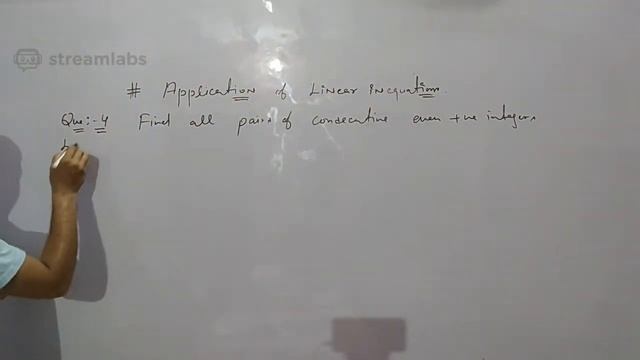 streamlabs
# Application of Linear Inequations.
Que:-4 Find all pairs of consecutive even +ve integers
b